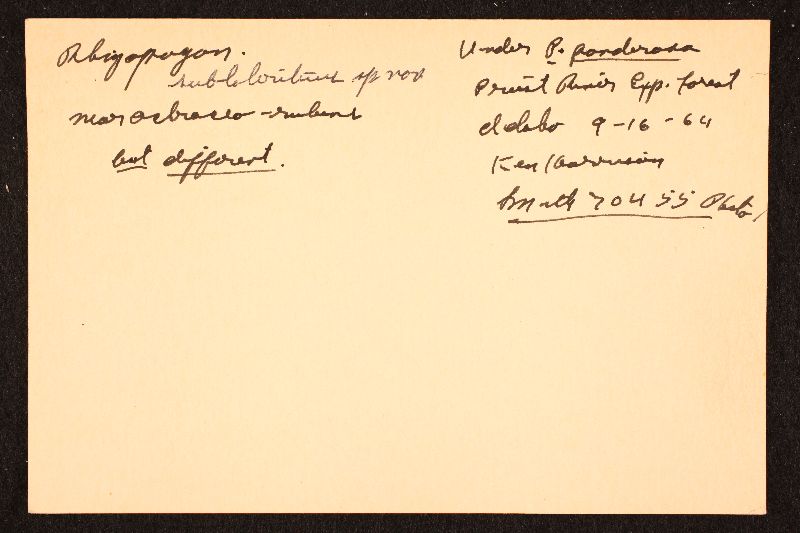 Rhizopogon.
sp nov
near ochraceo-rubens
but different.
Under P. ponderosa
Priest River Exp. Forest
Idaho 9-16-64
Ken Harrison
Smith 70455 Photo